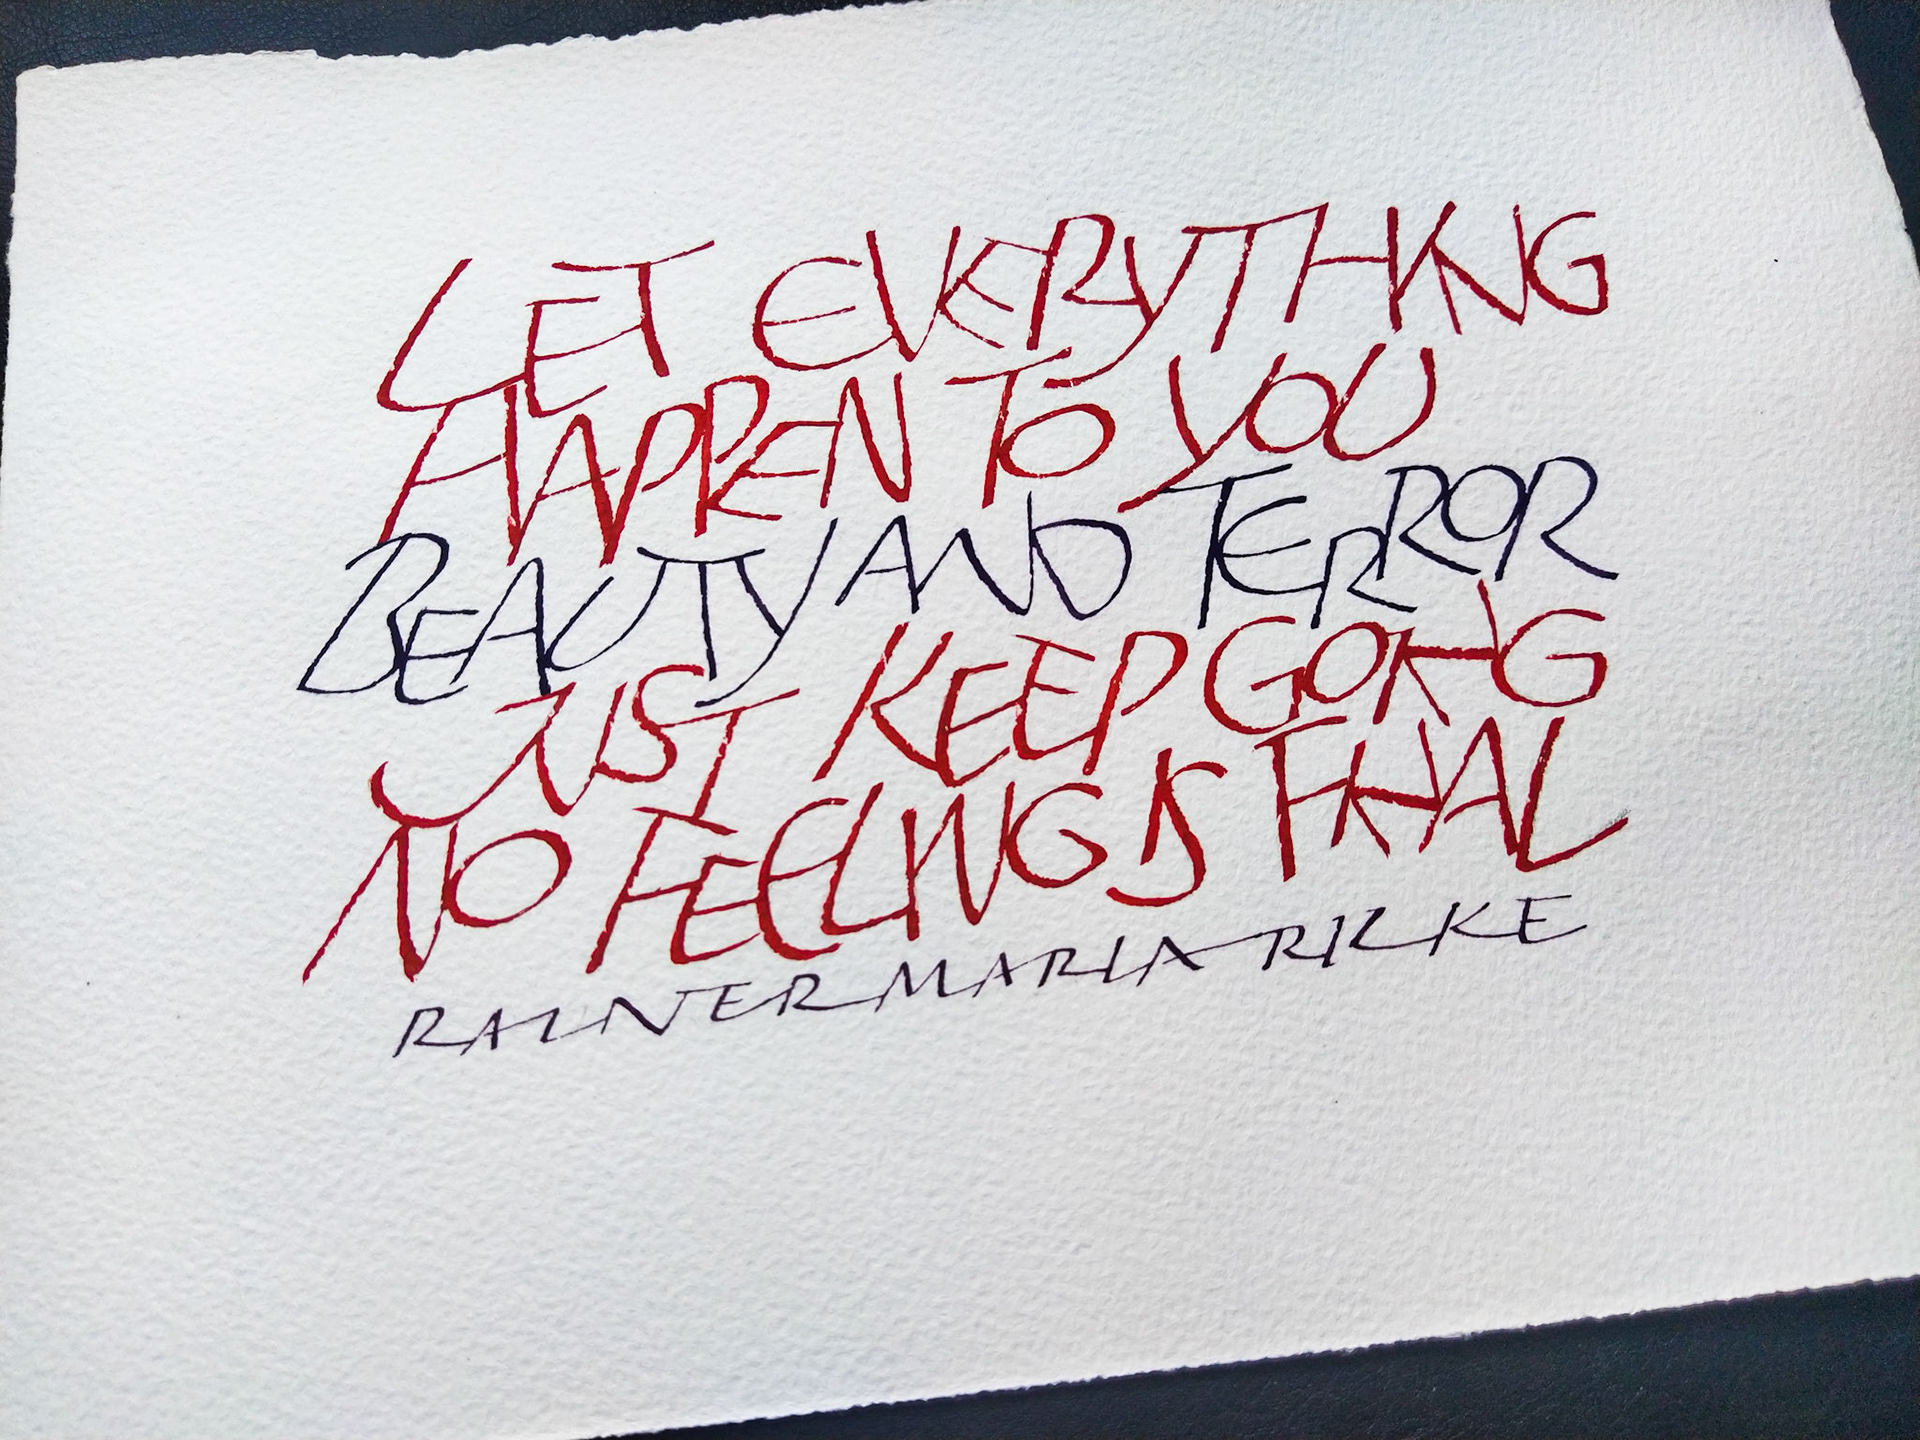 LET EVERYTHING
HAPPEN TO YOU
BEAUTY AND TERROR
JUST KEEP GOING
NO FEELING IS FINAL
RAINER MARIA RILKE